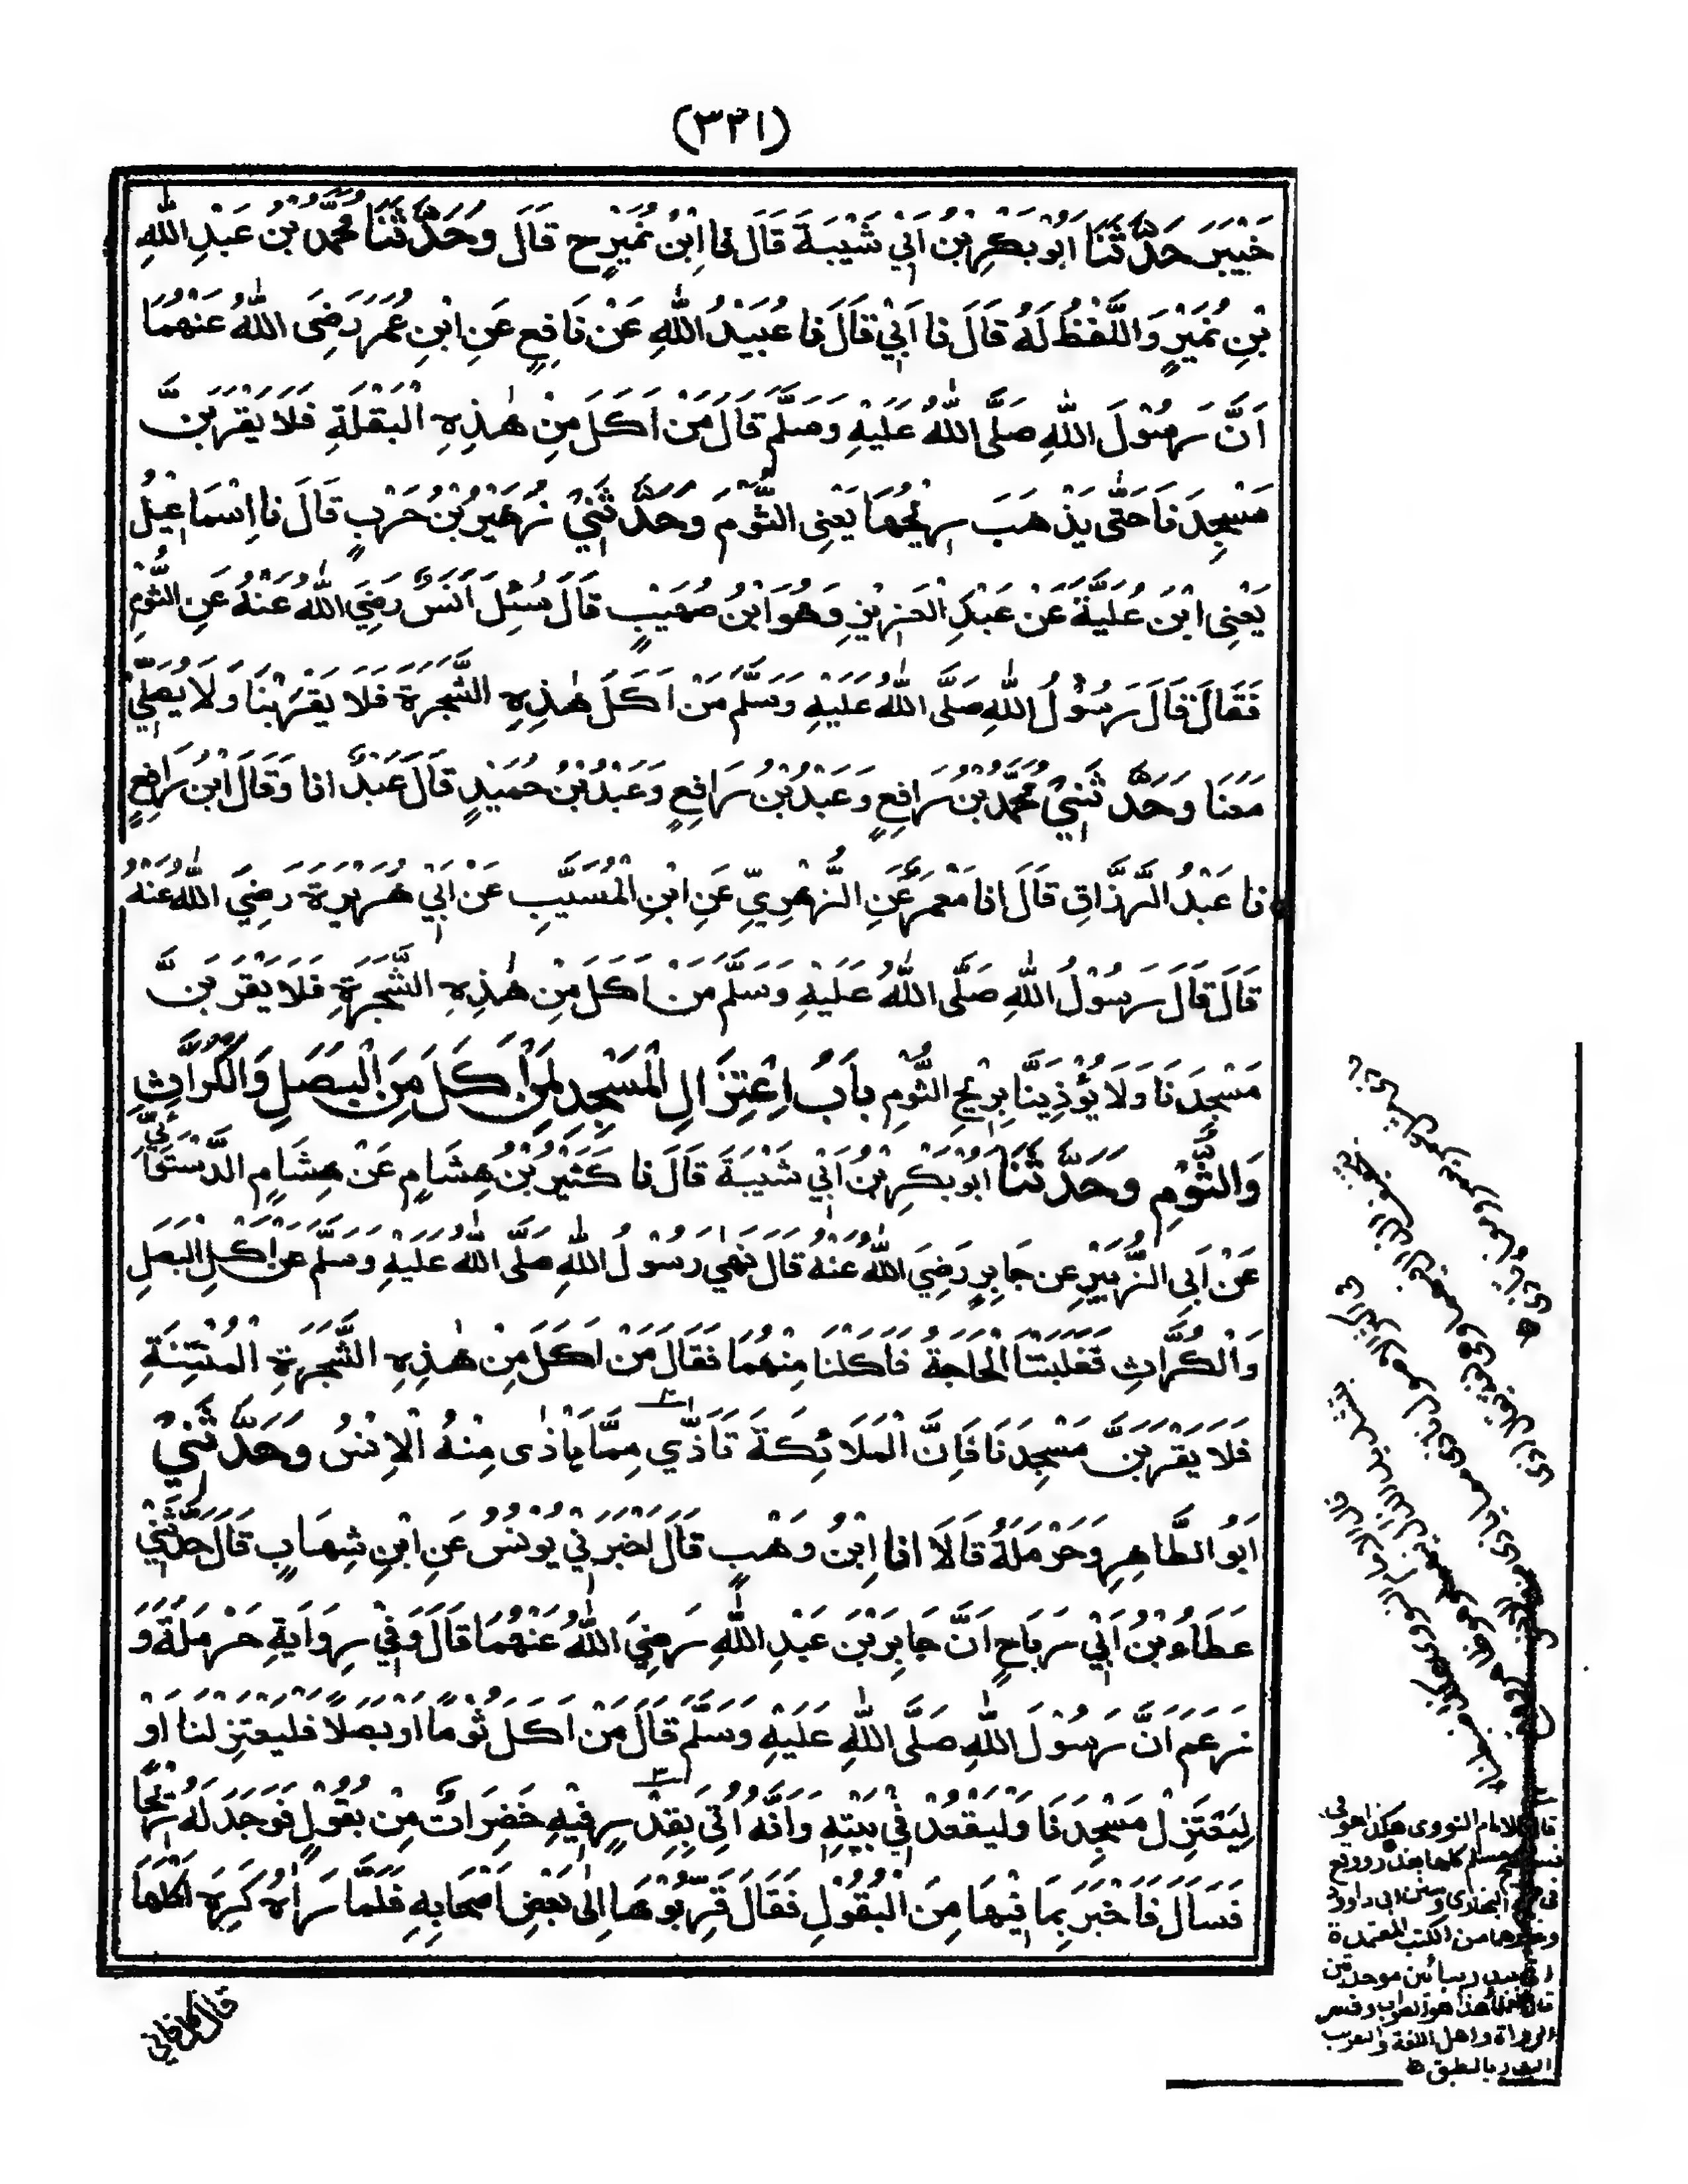 (٣٢١)
خَيْبَرَ حَدَّثَنَا اَبُوْ بَكْرِ بْنُ اَبِيْ شَيْبَةَ قَالَ نا اِبْنُ نُمَيْرٍ ح قَالَ وَحَدَّثَنَا مُحَمَّدُ بْنُ عَبْدِ اللّٰهِ
بْنِ نُمَيْرٍ وَاللَّفْظُ لَهُ قَالَ نا اَبِيْ قَالَ نا عُبَيْدُ اللّٰهِ عَنْ نَافِعٍ عَنِ ابْنِ عُمَرَ رَضِىَ اللّٰهُ عَنْهُمَا
اَنَّ رَسُوْلَ اللّٰهِ صَلَّى اللّٰهُ عَلَيْهِ وَسَلَّمَ قَالَ مَنْ اَكَلَ مِنْ هٰذِهِ الْبَقْلَةِ فَلَا يَقْرَبَنَّ
مَسْجِدَنَا حَتّٰى يَذْهَبَ رِيْحُهَا يَعْنِى الثُّوْمَ وَحَدَّثَنِيْ زُهَيْرُ بْنُ حَرْبٍ قَالَ نا اِسْمَاعِيْلُ
يَعْنِى ابْنَ عُلَيَّةَ عَنْ عَبْدِ الْعَزِيْزِ وَهُوَ ابْنُ صُهَيْبٍ قَالَ سُئِلَ اَنَسٌ رَضِيَ اللّٰهُ عَنْهُ عَنِ الثُّوْمِ
فَقَالَ قَالَ رَسُوْلُ اللّٰهِ صَلَّى اللّٰهُ عَلَيْهِ وَسَلَّمَ مَنْ اَكَلَ هٰذِهِ الشَّجَرَةَ فَلَا يَقْرَبْنَا وَلَا يُصَلِّيْ
مَعَنَا وَحَدَّثَنِيْ مُحَمَّدُ بْنُ رَافِعٍ وَعَبْدُ بْنُ رَافِعٍ وَعَبْدُ بْنُ حُمَيْدٍ قَالَ عَبْدٌ انا وَقَالَ ابْنُ رَافِعٍ
نا عَبْدُ الرَّزَّاقِ قَالَ انا مَعْمَرٌ عَنِ الزُّهْرِيِّ عَنِ ابْنِ الْمُسَيَّبِ عَنْ اَبِيْ هُرَيْرَةَ رَضِيَ اللّٰهُ عَنْهُ
قَالَ قَالَ رَسُوْلُ اللّٰهِ صَلَّى اللّٰهُ عَلَيْهِ وَسَلَّمَ مَنْ اَكَلَ مِنْ هٰذِهِ الشَّجَرَةِ فَلَا يَقْرَبَنَّ
مَسْجِدَنَا وَلَا يُؤْذِيَنَّا بِرِيْحِ الثُّوْمِ بَابُ اِعْتِزَالِ الْمَسْجِدِ لِمَنْ اَكَلَ مِنَ الْبَصَلِ وَالْكُرَّاثِ
وَالثُّوْمِ وَحَدَّثَنَا اَبُوْ بَكْرِ بْنُ اَبِيْ شَيْبَةَ قَالَ نا كَثِيْرُ بْنُ هِشَامٍ عَنْ هِشَامٍ الدَّسْتَوَائِيِّ
عَنْ اَبِى الزُّبَيْرِ عَنْ جَابِرٍ رَضِيَ اللّٰهُ عَنْهُ قَالَ نَهٰى رَسُوْلُ اللّٰهِ صَلَّى اللّٰهُ عَلَيْهِ وَسَلَّمَ عَنْ اَكْلِ الْبَصَلِ
وَالْكُرَّاثِ فَغَلَبَتْنَا الْحَاجَةُ فَاَكَلْنَا مِنْهُمَا فَقَالَ مَنْ اَكَلَ مِنْ هٰذِهِ الشَّجَرَةِ الْمُنْتِنَةِ
فَلَا يَقْرَبَنَّ مَسْجِدَنَا فَاِنَّ الْمَلَائِكَةَ تَاَذّٰى مِمَّا يَاْذٰى مِنْهُ الْاِنْسُ وَحَدَّثَنِيْ
اَبُو الطَّاهِرِ وَحَرْمَلَةُ قَالَا انا اِبْنُ وَهْبٍ قَالَ اَخْبَرَنِيْ يُوْنُسُ عَنِ ابْنِ شِهَابٍ قَالَ حَدَّثَنِيْ
عَطَاءُ بْنُ اَبِيْ رَبَاحٍ اَنَّ جَابِرَ بْنَ عَبْدِ اللّٰهِ رَضِيَ اللّٰهُ عَنْهُمَا قَالَ وَفِيْ رِوَايَةِ حَرْمَلَةَ وَ
زَعَمَ اَنَّ رَسُوْلَ اللّٰهِ صَلَّى اللّٰهِ عَلَيْهِ وَسَلَّمَ قَالَ مَنْ اَكَلَ ثُوْمًا اَوْ بَصَلًا فَلْيَعْتَزِلْنَا اَوْ
لِيَعْتَزِلْ مَسْجِدَنَا وَلْيَقْعُدْ فِيْ بَيْتِهِ وَاَنَّهُ اُتِىَ بِقِدْرٍ فِيْهِ خَضِرَاتٌ مِنْ بُقُوْلٍ فَوَجَدَ لَهُ رِيْحًا
فَسَاَلَ فَاُخْبِرَ بِمَا فِيْهَا مِنَ الْبُقُوْلِ فَقَالَ قَرِّبُوْهَا اِلٰى بَعْضِ اَصْحَابِهِ فَلَمَّا رَاٰهُ كَرِهَ اَكْلَهَا
قال الامام النووى هكذا هو فى
نسخ مسلم كلها بقدر ووقع
فى البخارى وسنن ابى داود
وغيرهما من الكتب المعتمدة
اتى ببدر ببائين موحدتين
قال العلماء هذا هو الصواب وفسر
الرواة واهل اللغة والعرب
البدر بالطبق